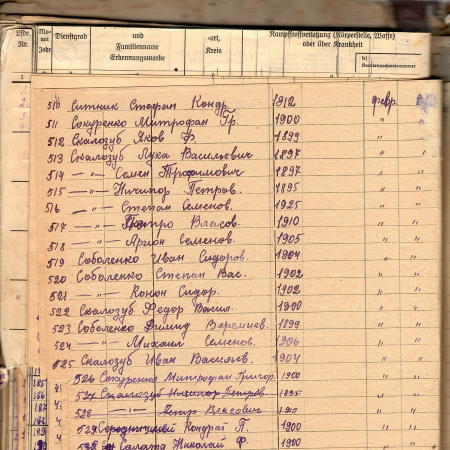 Lfde. Nr. Mo- nat Jahr Dienstgrad und Familienname Erkennungsmarke -ort, Kreis Kampfstoffverletzung (Körperstelle, Waffe) oder über Krankheit
b) Krankenkartennummer
510 Ситник Стефан Конд. 1912 февр.
511 Сокуренко Митрофан Гр. 1900 "
512 Скалозуб Яков Ф. 1899 "
513 Скалозуб Лука Васильевич 1897 "
514 —"— Семен Трофимович 1897 "
515 —"— Ничипор Петров. 1895 " "
516 —"— Степан Семенов. 1925 " "
517 —"— Петро Власов. 1910 " "
518 —"— Семенов. 1905 " "
519 Соболенко Иван Сидоров. 1904 " "
520 Соболенко Степан Вас. 1902 " "
521 —"— Конон Сидор. 1902 " "
522 Скалозуб Федор Васил. 1900 " "
523 Соболенко Демид Веремиев. 1899 " "
524 —"— Михаил Семенов. 1906 " "
525 Скалозуб Иван Васильев. 1904 " "
526 Сокуренко Митрофан Григор. 1900 " "
527 Скалозуб Ничипор Петров 1895 " "
528 —"— Петр Власович 1910 " "
529 Кондрат П. 1900 " "
Салата Николай Ф. 1900 " "
185
166
187
188
189